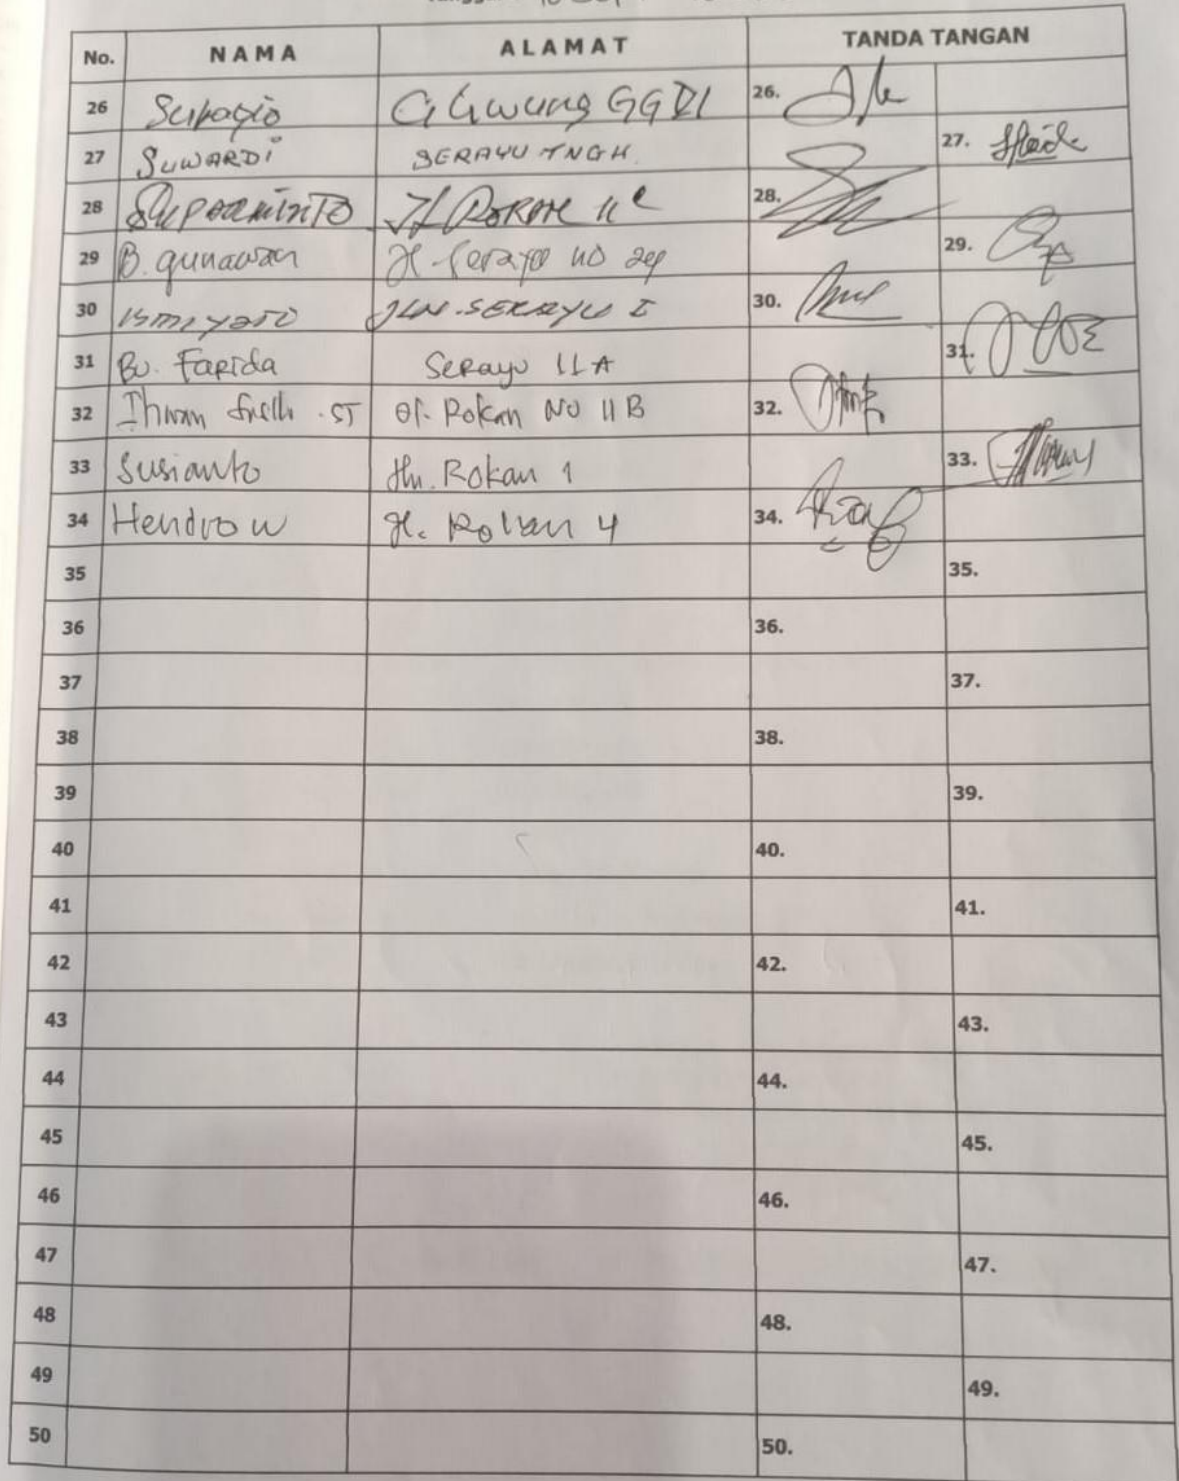 No. NAMA ALAMAT TANDA TANGAN
26 Subagio Ciliwung GG DI 26.
27 SUWARDI SERAYU TNGH. 27.
28 SUPARMINTO JL ROKAN 11 C 28.
29 B. gunawan Jl. Serayu no 29.
30 ismiyato JLN. SERAYU I 30.
31 Bu. Farida Serayu 11A 31.
32 Ihwan .ST Jl. Rokan No 11 B 32.
33 Susianto Jln. Rokan 1 33.
34 Hendro W Jl. Rokan 4 34.
35 35.
36 36.
37 37.
38 38.
39 39.
40 40.
41 41.
42 42.
43 43.
44 44.
45 45.
46 46.
47 47.
48 48.
49 49.
50 50.